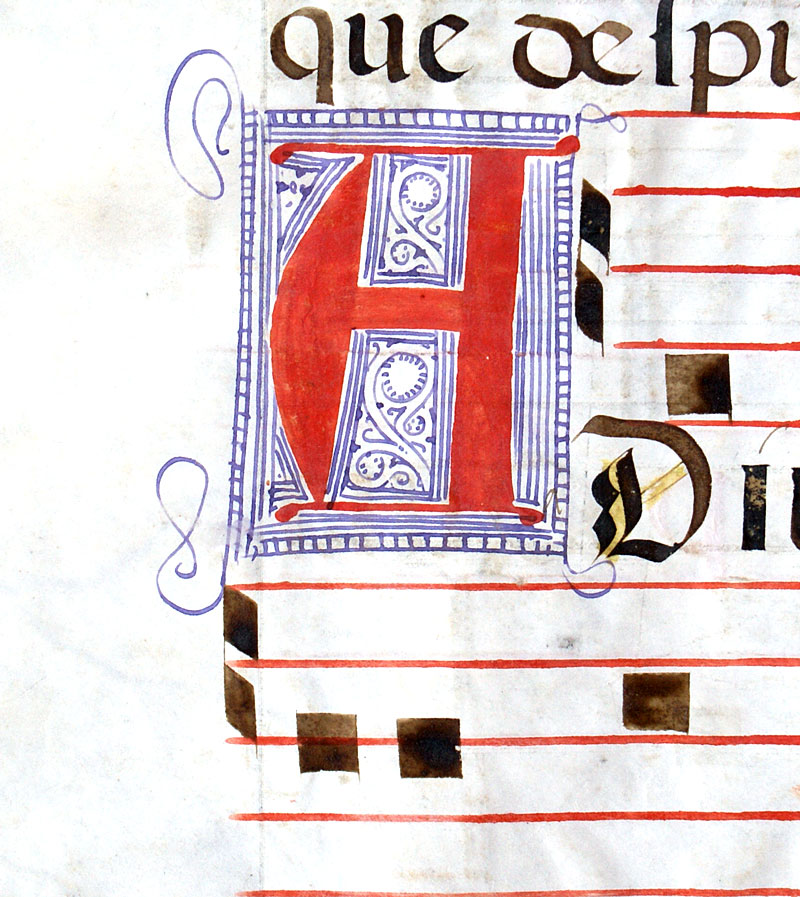 que despi
A Diu